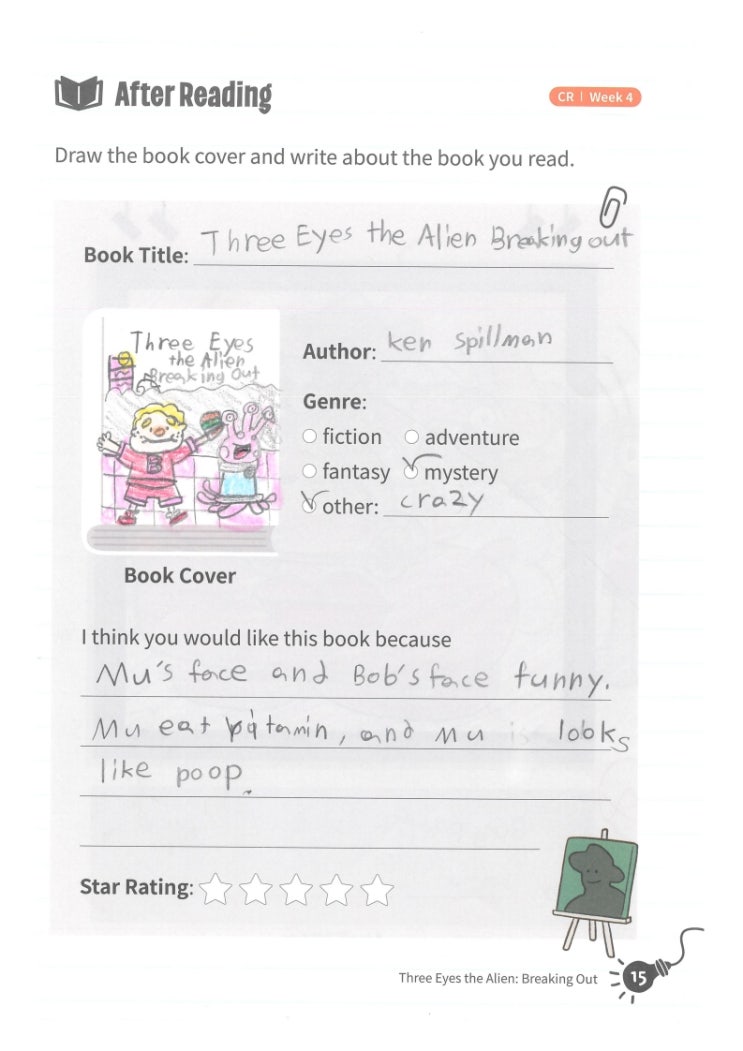 After Reading
CR | Week 4
Draw the book cover and write about the book you read.
Book Title: Three Eyes the Alien Breaking out
Three Eyes
the Alien
Breaking Out
B
Author: ken spillman
Genre:
fiction adventure
fantasy mystery
other: crazy
Book Cover
I think you would like this book because
Mu's face and Bob's face funny.
Mu eat pátamin, and Mu looks
like poop.
Star Rating:
Three Eyes the Alien: Breaking Out
15